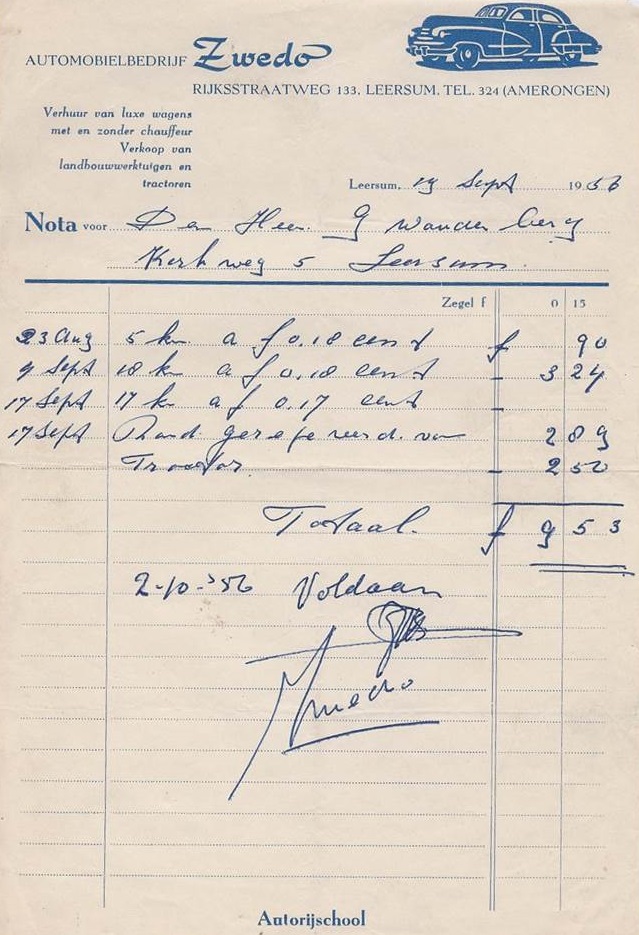 AUTOMOBIELBEDRIJF Zwedo
RIJKSSTRAATWEG 133, LEERSUM, TEL. 324 (AMERONGEN)
Verhuur van luxe wagens
met en zonder chauffeur
Verkoop van
landbouwwerktuigen en
tractoren
Leersum, 19 Sept 1956
Nota voor Den Heer. G van den berg
Kerkweg 5 Leersum.
Zegel f 0 15
23 Aug 5 km a f 0.18 cent f 90
9 Sept 18 km a f 0.18 cent - 3 24
17 Sept 17 km a f 0.17 cent -
17 Sept Band gerepareerd. van 2 89
Tractor. - 2 50
Totaal. f 9 53
2-10-'56 Voldaan
Zwedo
Autorijschool